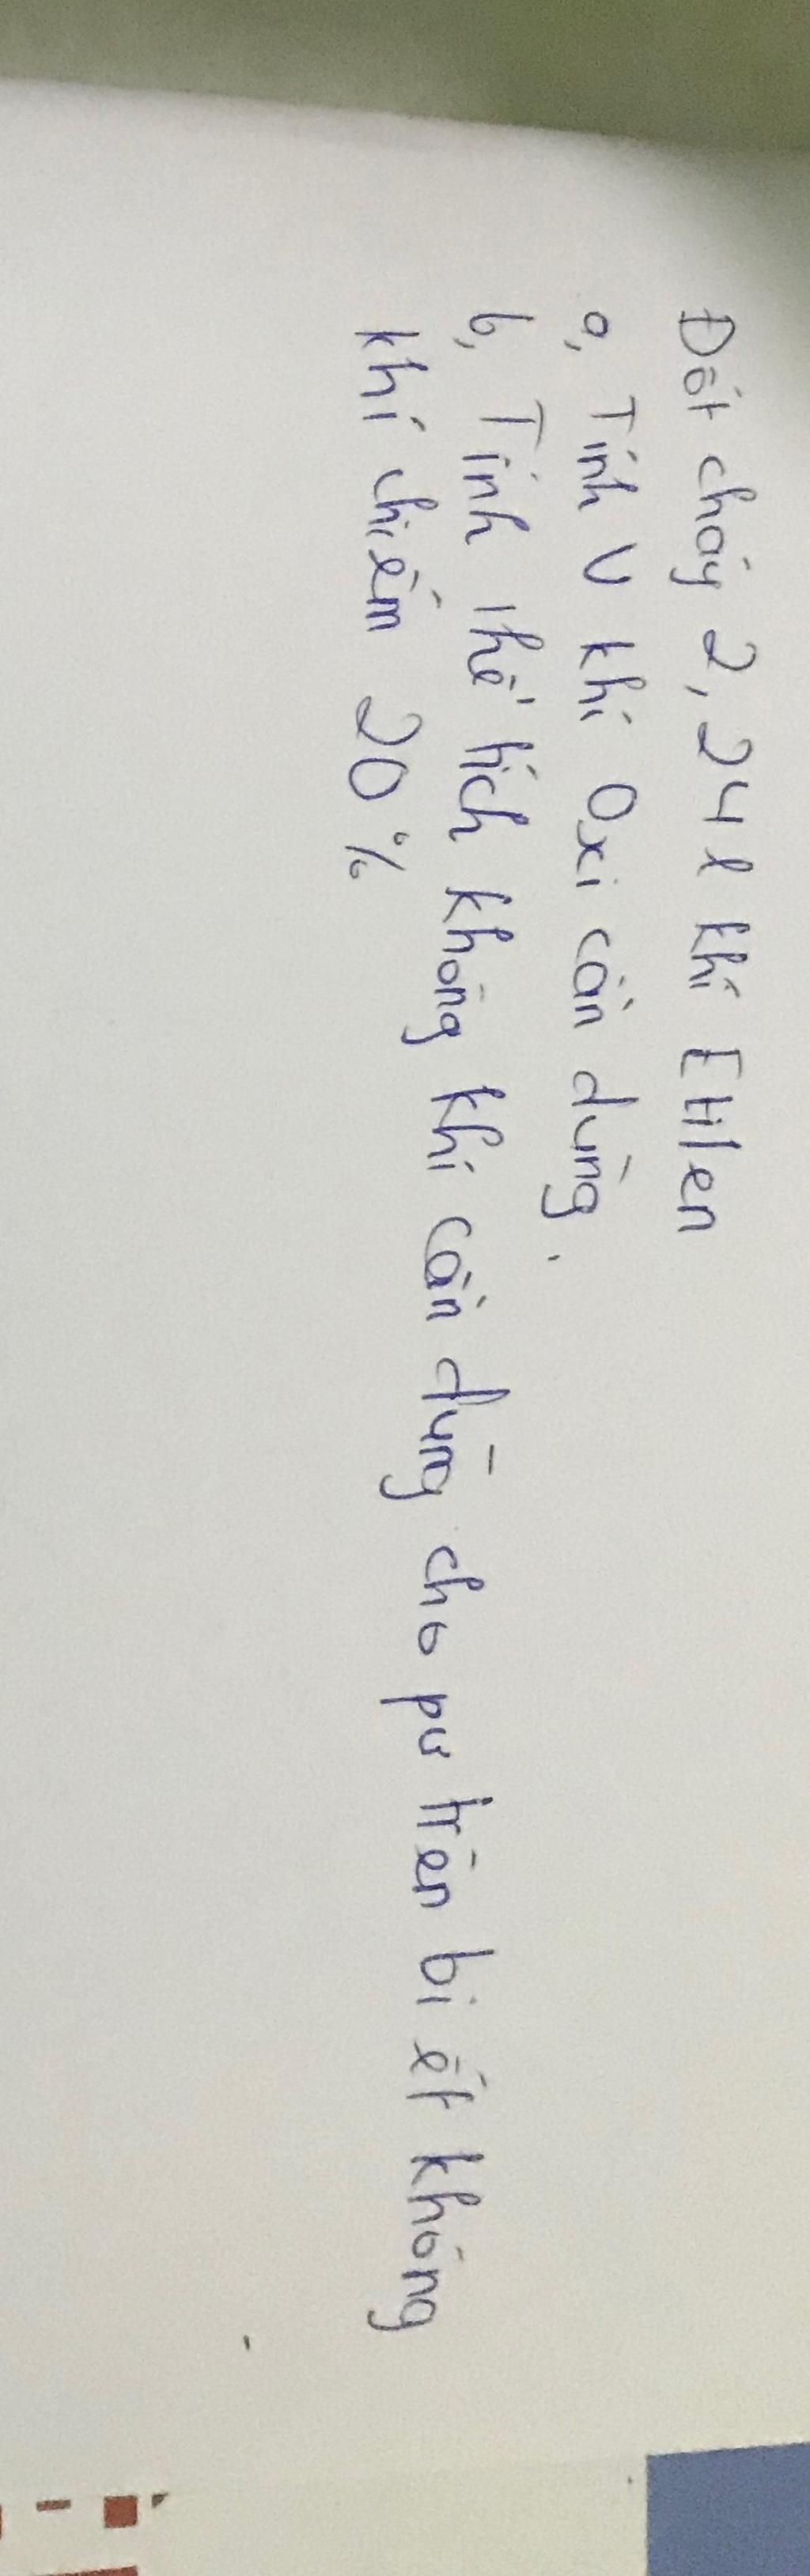 Đốt cháy 2,24 l khí Etilen
a, Tính V khí Oxi cần dùng.
b, Tính thể tích không khí cần dùng cho pư trên biết không
khí chiếm 20%